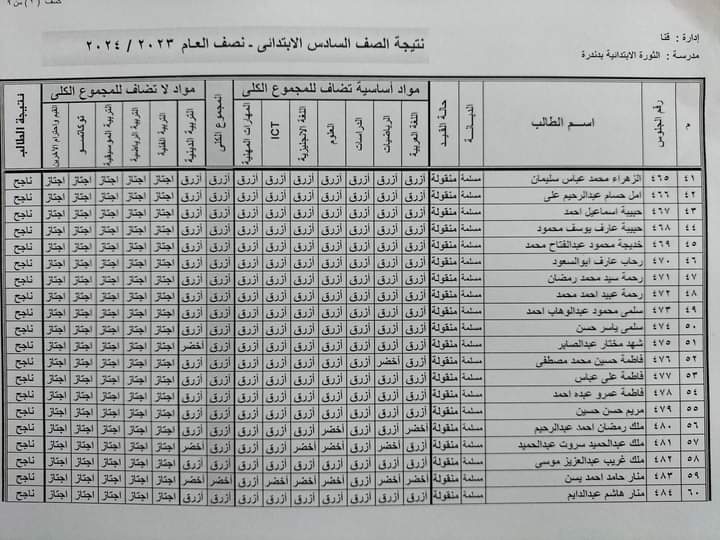 كشف (٣) ص ٣
إدارة : قنا
مدرسة : الثورة الابتدائية بدندرة
نتيجة الصف السادس الابتدائى - نصف العام ٢٠٢٣ / ٢٠٢٤
م رقم الجلوس اسم الطالب الديانة حالة القيد مواد أساسية تضاف للمجموع الكلى المجموع الكلى مواد لا تضاف للمجموع الكلى نتيجة الطالب
اللغة العربية الرياضيات الدراسات العلوم اللغة الانجليزية ICT المهارات المهنية التربية الدينية التربية الفنية التربية الرياضية التربية الموسيقية توكاتسو القيم واحترام الآخرين
٤١ ٤٦٥ الزهراء محمد عباس سليمان مسلمة منقولة ازرق ازرق ازرق ازرق ازرق ازرق ازرق ازرق ازرق اجتاز اجتاز اجتاز اجتاز اجتاز ناجح
٤٢ ٤٦٦ امل حسام عبدالرحيم على مسلمة منقولة ازرق ازرق ازرق ازرق ازرق ازرق ازرق ازرق ازرق اجتاز اجتاز اجتاز اجتاز اجتاز ناجح
٤٣ ٤٦٧ حبيبة اسماعيل احمد مسلمة منقولة ازرق ازرق ازرق ازرق ازرق ازرق ازرق ازرق ازرق اجتاز اجتاز اجتاز اجتاز اجتاز ناجح
٤٤ ٤٦٨ حبيبة عارف يوسف محمود مسلمة منقولة ازرق ازرق ازرق ازرق ازرق ازرق ازرق ازرق ازرق اجتاز اجتاز اجتاز اجتاز اجتاز ناجح
٤٥ ٤٦٩ خديجة محمود عبدالفتاح محمد مسلمة منقولة ازرق ازرق ازرق ازرق ازرق ازرق ازرق ازرق ازرق اجتاز اجتاز اجتاز اجتاز اجتاز ناجح
٤٦ ٤٧٠ رحاب عارف ابوالسعود مسلمة منقولة ازرق ازرق ازرق ازرق ازرق ازرق ازرق ازرق ازرق اجتاز اجتاز اجتاز اجتاز اجتاز ناجح
٤٧ ٤٧١ رحمة سيد محمد رمضان مسلمة منقولة ازرق ازرق ازرق ازرق ازرق ازرق ازرق ازرق ازرق اجتاز اجتاز اجتاز اجتاز اجتاز ناجح
٤٨ ٤٧٢ رحمة عبيد احمد محمد مسلمة منقولة ازرق ازرق ازرق ازرق ازرق ازرق ازرق ازرق ازرق اجتاز اجتاز اجتاز اجتاز اجتاز ناجح
٤٩ ٤٧٣ سلمى محمود عبدالوهاب احمد مسلمة منقولة ازرق ازرق ازرق ازرق ازرق ازرق ازرق ازرق ازرق اجتاز اجتاز اجتاز اجتاز اجتاز ناجح
٥٠ ٤٧٤ سلمى ياسر حسن مسلمة منقولة ازرق ازرق ازرق ازرق ازرق ازرق ازرق ازرق ازرق اجتاز اجتاز اجتاز اجتاز اجتاز ناجح
٥١ ٤٧٥ شهد مختار عبدالصابر مسلمة منقولة ازرق ازرق ازرق ازرق ازرق ازرق ازرق ازرق اخضر اجتاز اجتاز اجتاز اجتاز اجتاز ناجح
٥٢ ٤٧٦ فاطمة حسين محمد مصطفى مسلمة منقولة ازرق اخضر ازرق ازرق ازرق ازرق ازرق ازرق ازرق اجتاز اجتاز اجتاز اجتاز اجتاز ناجح
٥٣ ٤٧٧ فاطمة على عباس مسلمة منقولة ازرق ازرق ازرق ازرق ازرق ازرق ازرق ازرق ازرق اجتاز اجتاز اجتاز اجتاز اجتاز ناجح
٥٤ ٤٧٨ فاطمة عمرو عبده احمد مسلمة منقولة ازرق ازرق ازرق ازرق ازرق ازرق ازرق ازرق ازرق اجتاز اجتاز اجتاز اجتاز اجتاز ناجح
٥٥ ٤٧٩ مريم حسن حسين مسلمة منقولة ازرق ازرق ازرق ازرق ازرق ازرق ازرق ازرق ازرق اجتاز اجتاز اجتاز اجتاز اجتاز ناجح
٥٦ ٤٨٠ ملك رمضان احمد عبدالرحيم مسلمة منقولة اخضر اخضر ازرق اخضر ازرق ازرق ازرق ازرق ازرق اجتاز اجتاز اجتاز اجتاز اجتاز ناجح
٥٧ ٤٨١ ملك عبدالحميد سروت عبدالحميد مسلمة منقولة اخضر اخضر ازرق اخضر اخضر ازرق ازرق ازرق اخضر اجتاز اجتاز اجتاز اجتاز اجتاز ناجح
٥٨ ٤٨٢ ملك غريب عبدالعزيز موسى مسلمة منقولة ازرق اخضر ازرق ازرق ازرق ازرق ازرق ازرق اخضر اجتاز اجتاز اجتاز اجتاز اجتاز ناجح
٥٩ ٤٨٣ منار حامد احمد يسن مسلمة منقولة اخضر اخضر ازرق ازرق اخضر اخضر ازرق ازرق اخضر اجتاز اجتاز اجتاز اجتاز اجتاز ناجح
٦٠ ٤٨٤ منار هاشم عبدالدايم مسلمة منقولة ازرق ازرق ازرق ازرق ازرق ازرق ازرق ازرق ازرق اجتاز اجتاز اجتاز اجتاز اجتاز ناجح